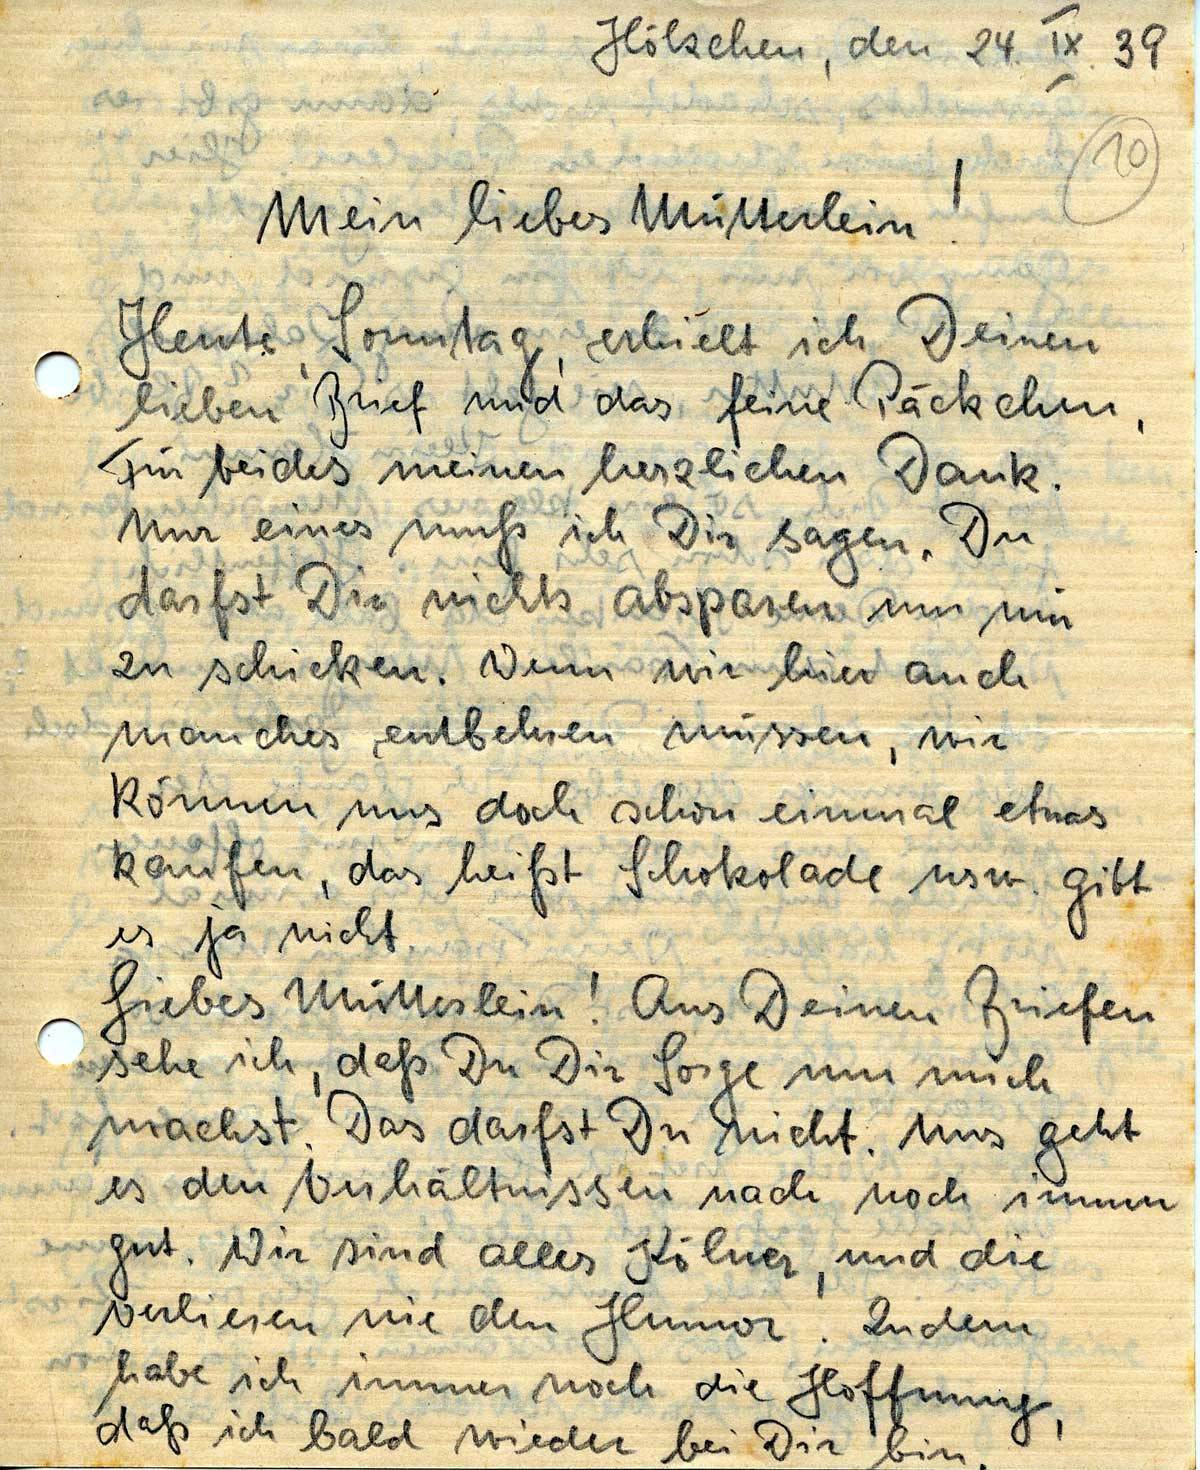 Hölschen, den 24. IX. 39
20
Mein liebes Mütterlein!
Heute, Sonntag, erhielt ich Deinen
lieben Brief und das feine Päckchen,
Für beides meinen herzlichen Dank.
Nur eines muß ich Dir sagen. Du
darfst Dir nichts absparen um mir
zu schicken. Wenn wir hier auch
manches entbehren müssen, wir
können uns doch schon einmal etwas
kaufen, das heißt Schokolade usw. gibt
es ja nicht.
Liebes Mütterlein! Aus Deinen Briefen
sehe ich, daß Du Dir Sorge um mich
machst. Das darfst Du nicht. Uns geht
es den Verhältnissen nach noch immer
gut. Wir sind alles Kölner, und die
verlieren nie den Humor. Zudem
habe ich immer noch die Hoffnung,
daß ich bald wieder bei Dir bin.